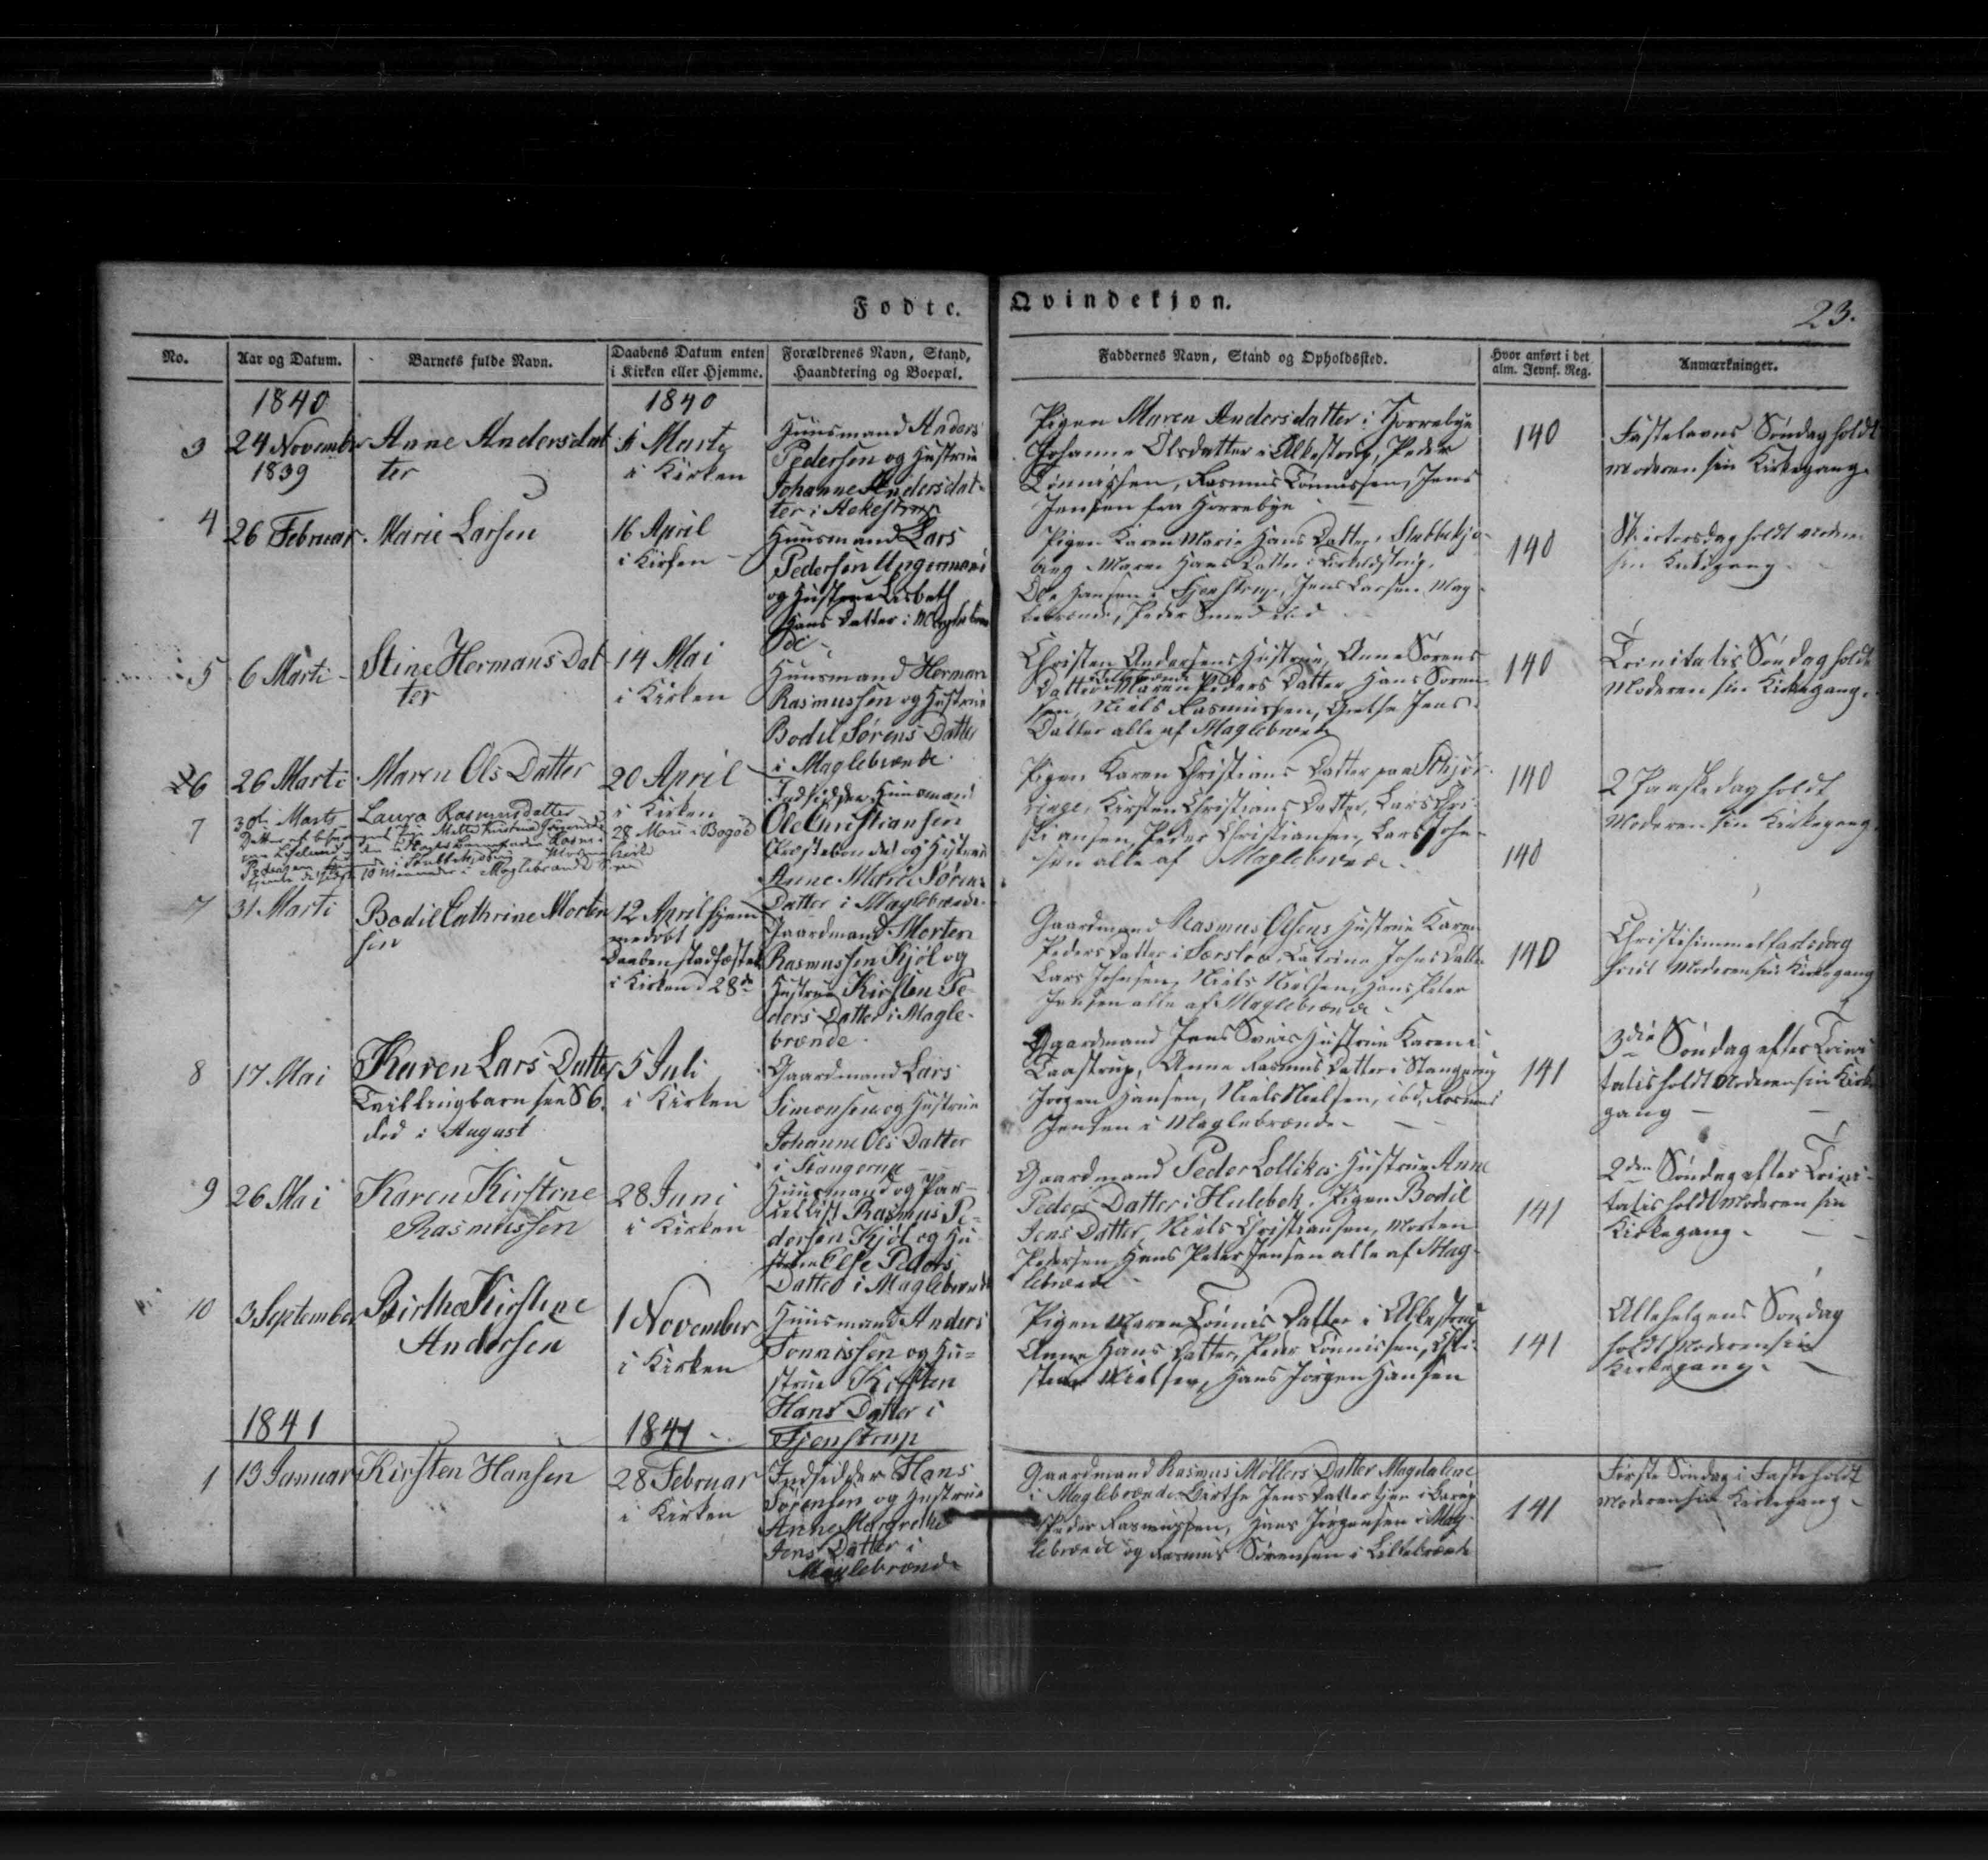 Fødte. Qvindekjøn.
23.
No. Aar og Datum. Barnets fulde Navn. Daabens Datum enten i Kirken eller Hjemme. Forældrenes Navn, Stand, Haandtering og Boepæl. Faddernes Navn, Stand og Opholdssted. Hvor anført i det alm. Jevnf. Reg. Anmærkninger.
1840
1840
3
24 November
1839
Anne Andersdat
ter
Marty
i Kirken
Huusmand Anders
Pedersen og Hustrue
Johanne Andersdat-
ter i
Pigen Maren Andersdatter i Horrebye
Johanne Olsdatter i Albestrup, Peder
Tönnissen, Rasmus Tönnissen, Jens
Jensen fra Horrebye
140
Fastelavns Søndag holdt
Moderen sin Kirkegang
4
26 Februar
Marie Larsen
16 April
i Kirken
Huusmand Lars
Pedersen Ungermand
og Hustrue Lisbeth
Hans Datter i Maglebræn
de
Pigen Karen Marie Hans Datter i Stubbekjø-
bing Maren Hans Datter i
Ole Hansen i Fjenstrup, Jens Larsen Mag-
lebrænde, Peder Smed ibid
140
Skiertorsdag holdt Moderen
sin Kirkegang
5
6 Marti
Stine Hermans Dat
ter
14 Mai
i Kirken
Huusmand Herman
Rasmussen og Hustrue
Bodil Sørens Datter
i Maglebrænde
Christen Andersens Hustrue, Anne Sørens
Datter Maren Peders Datter Hans Søren-
sen, Niels Rasmussen, Grethe Jens
Datter alle af Maglebrænde
140
Trinitatis Søndag holdt
Moderen sin Kirkegang.
6
26 Marti
Maren Ols Datter
20 April
i Kirken
Indsidder Huusmand
Ole Christiansen
og Hustrue
Anne Marie Sørens
Datter i Maglebrænde
Pigen Karen Christians Datter paa
Kirsten Christians Datter, Lars Chri-
stiansen, Peder Christiansen, Lars John-
sen alle af Maglebrænde
140
2 Paaskedag holdt
Moderen sin Kirkegang
7
30te Marts
Laura Rasmusdatter
Datter af
Pedersen
10 Maaneder i Maglebrænde Sogn
28 Mai i Bogøe
140
7
31 Marti
Bodil Cathrine Morten
sen
12 April hjem
medøbt
Daaben stadfæstet
i Kirken d 28de
Gaardmand Morten
Rasmussen Kjøl og
Hustrue Kirsten Pe-
ders Datter i Magle-
brænde
Gaardmand Rasmus Olsens Hustrue Karen
Peders Datter i Særsløv, Catrine Johns Datter
Lars Johnsen, Niels Nielsen, Hans Peter
Jensen alle af Maglebrænde
140
Christihimmelfartsdag
holdt Moderen sin Kirkegang
8
17 Mai
Karen Lars Datter
Tvillingbarn see S 6.
død i August
5 Juli
i Kirken
Gaardmand Lars
Simonsen og Hustrue
Johanne Ols Datter
i Stangerup
Gaardmand Jens Hustrue Karen i
Taastrup, Anne Rasmus Datter i Stangerup
Jørgen Hansen, Niels Nielsen, ibd, Rasmus
Jensen i Maglebrænde
141
3die Søndag efter Trini
tatis holdt Moderen sin Kirke
gang
9
26 Mai
Karen Kirstine
Rasmussen
28 Juni
i Kirken
Huusmand og Par-
cellist Rasmus P-
dersen Kjøl og Hu
strue Else Peders
Datter i Maglebrænde
Gaardmand Peder Lollikes Hustrue Anne
Peders Datter i Hulebek, Pigen Bodil
Jens Datter, Niels Christiansen, Morten
Pedersen, Hans Peter Jensen alle af Mag-
lebrænde
141
2den Søndag efter Trini-
tatis holdt Moderen sin
Kirkegang
10
3 September
Birthe Kirstine
Andersen
1 November
i Kirken
Huusmand Anders
Tönnissen og Hu=
strue Kirsten
Hans Datter i
Fjenstrup
Pigen Maren Tönnis Datter i Albestrup
Anne Hans Datter, Peder Tönnissen, Chri-
sten Nielsen, Hans Jörgen Hansen
141
Allehelgens Søndag
holdt Moderen sin
Kirkegang
1841
1841
1
13 Januar
Kirsten Hansen
28 Februar
i Kirken
Indsidder Hans
Sørensen og Hustrue
Anne Margrethe
Jens Datter i
Maglebrænde
Gaardmand Rasmus Möllers Datter Magdalene
i Maglebrænde Birthe Jens Datter tjen i
Peder Rasmussen, Hans Jørgensen i Mag-
lebrænde og Rasmus Sørensen i Lillebrænde
141
Første Søndag i Faste holdt
Moderen sin Kirkegang